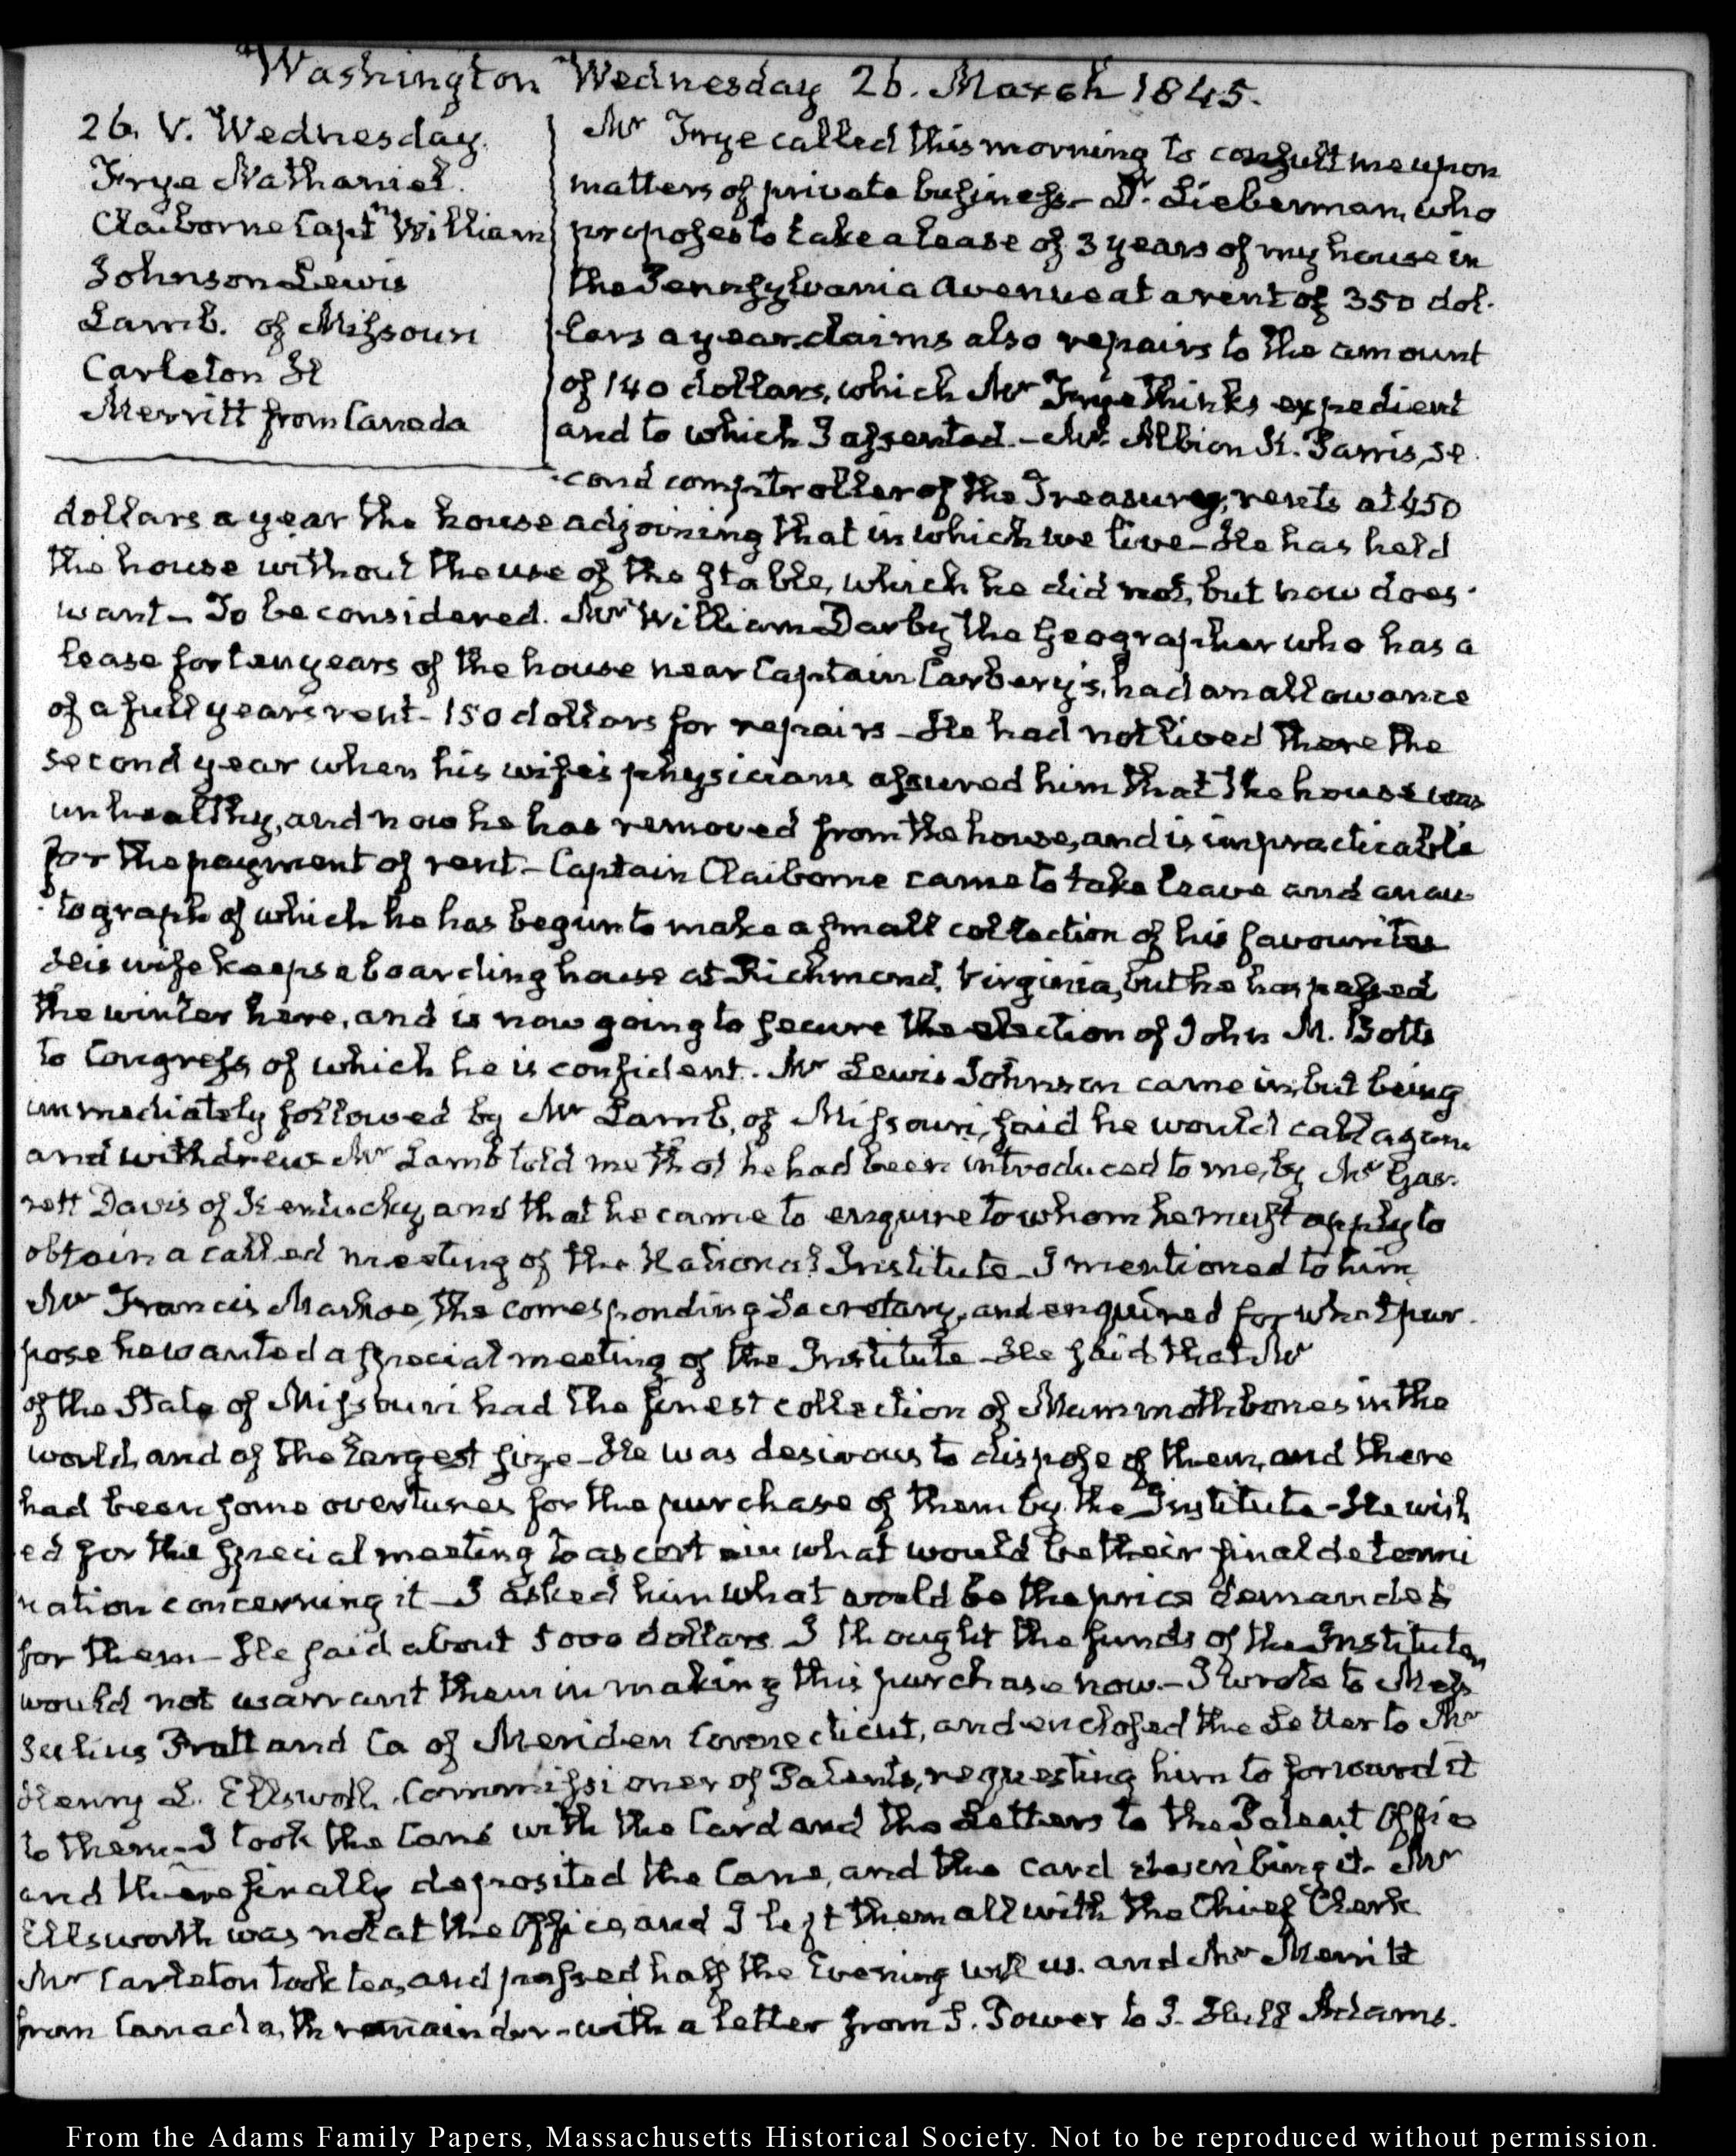 Washington Wednesday 26. March 1845.
26. V. Wednesday.
Frye Nathaniel.
Claiborne Captn William
Johnson Lewis
Lamb. of Missouri
Carleton H
Merritt from Canada
Mr Frye called this morning to consult me upon
matters of private business— Dr. Lieberman, who
proposes to take a lease of 3 years of my house in
the Pennsylvania Avenue at a rent of 350 dol-
lars a year, claims also repairs to the amount
of 140 dollars, which Mr Frye thinks expedient
and to which I assented.— Mr. Albion K. Parris, se-
cond comptroller of the Treasury, rents at 450
dollars a year the house adjoining that in which we live— He has held
the house without the use of the stable, which he did not, but now does
want— To be considered. Mr William Darby the Geographer who has a
lease for ten years of the house near Captain Carbery's, had an allowance
of a full years rent— 150 dollars for repairs— He had not lived there the
second year when his wife's physicians assured him that the house was
unhealthy, and now he has removed from the house, and is impracticable
for the payment of rent.— Captain Claiborne came to take leave and an au-
tograph of which he has begun to make a small collection of his favourites
His wife keeps a boarding house at Richmond, Virginia, but he has passed
the winter here, and is now going to secure the election of John M. Botts
to Congress, of which he is confident. Mr Lewis Johnson came in, but being
immediately followed by Mr Lamb, of Missouri, said he would call again
and withdrew. Mr Lamb told me that he had been introduced to me, by Mr Gar-
rett Davis of Kentucky, and that he came to enquire to whom he must apply to
obtain a called meeting of the National Institute— I mentioned to him
Mr Francis Markoe, the corresponding Secretary, and enquired for what pur-
pose he wanted a special meeting of the Institute— He said that Mr
of the State of Missouri had the finest collection of Mammoth bones in the
world, and of the largest size— He was desirous to dispose of them, and there
had been some overtures for the purchase of them by the Institute— He wish
ed for the special meeting to ascertain what would be their final determi
nation concerning it— I asked him what would be the price demanded
for them— He said about 5000 dollars. I thought the funds of the Institute
would not warrant them in making this purchase now.— I wrote to Mess
Julius Pratt and Co of Meriden Connecticut, and enclosed the Letter to Mr
Henry L. Ellsworth, Commissioner of Patents, requesting him to forward it
to them— I took the Cane with the Card and the Letters to the Patent Office
and there finally deposited the Cane, and the card describing it. Mr
Ellsworth was not at the Office, and I left them all with the Chief Clerk
Mr Carleton took tea, and passed half the Evening with us. and Mr Merritt
from Canada, th remainder— with a letter from F. Tower to I. Hull Adams.
From the Adams Family Papers, Massachusetts Historical Society. Not to be reproduced without permission.